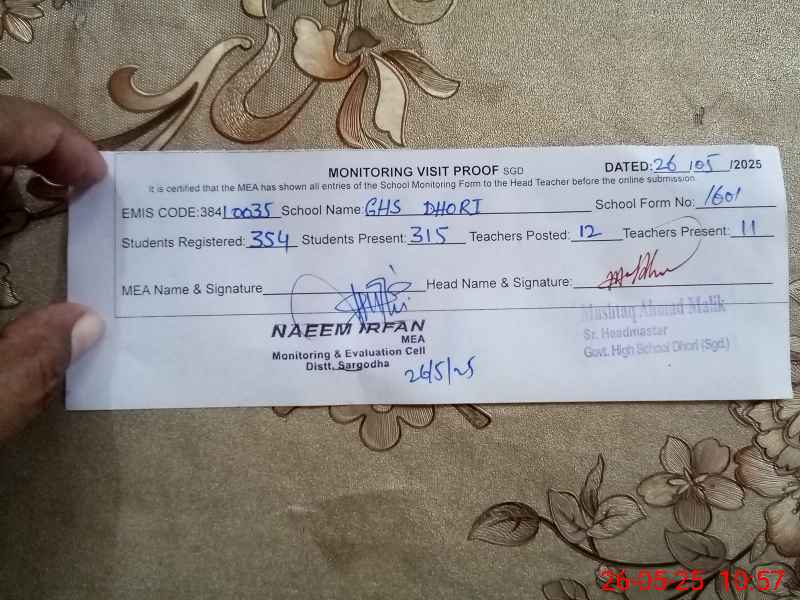 MONITORING VISIT PROOF SGD DATED: 26/05/2025
It is certified that the MEA has shown all entries of the School Monitoring Form to the Head Teacher before the online submission.
EMIS CODE:38410035 School Name: GHS DHORI School Form No: 1601
Students Registered: 354 Students Present: 315 Teachers Posted: 12 Teachers Present: 11
MEA Name & Signature Head Name & Signature:
NAEEM IRFAN
MEA
Monitoring & Evaluation Cell
Distt, Sargodha
26/5/25
Mushtaq Ahmad Malik
Sr. Headmaster
Govt. High School Dhori (Sgd.)
26-05-25 10:57